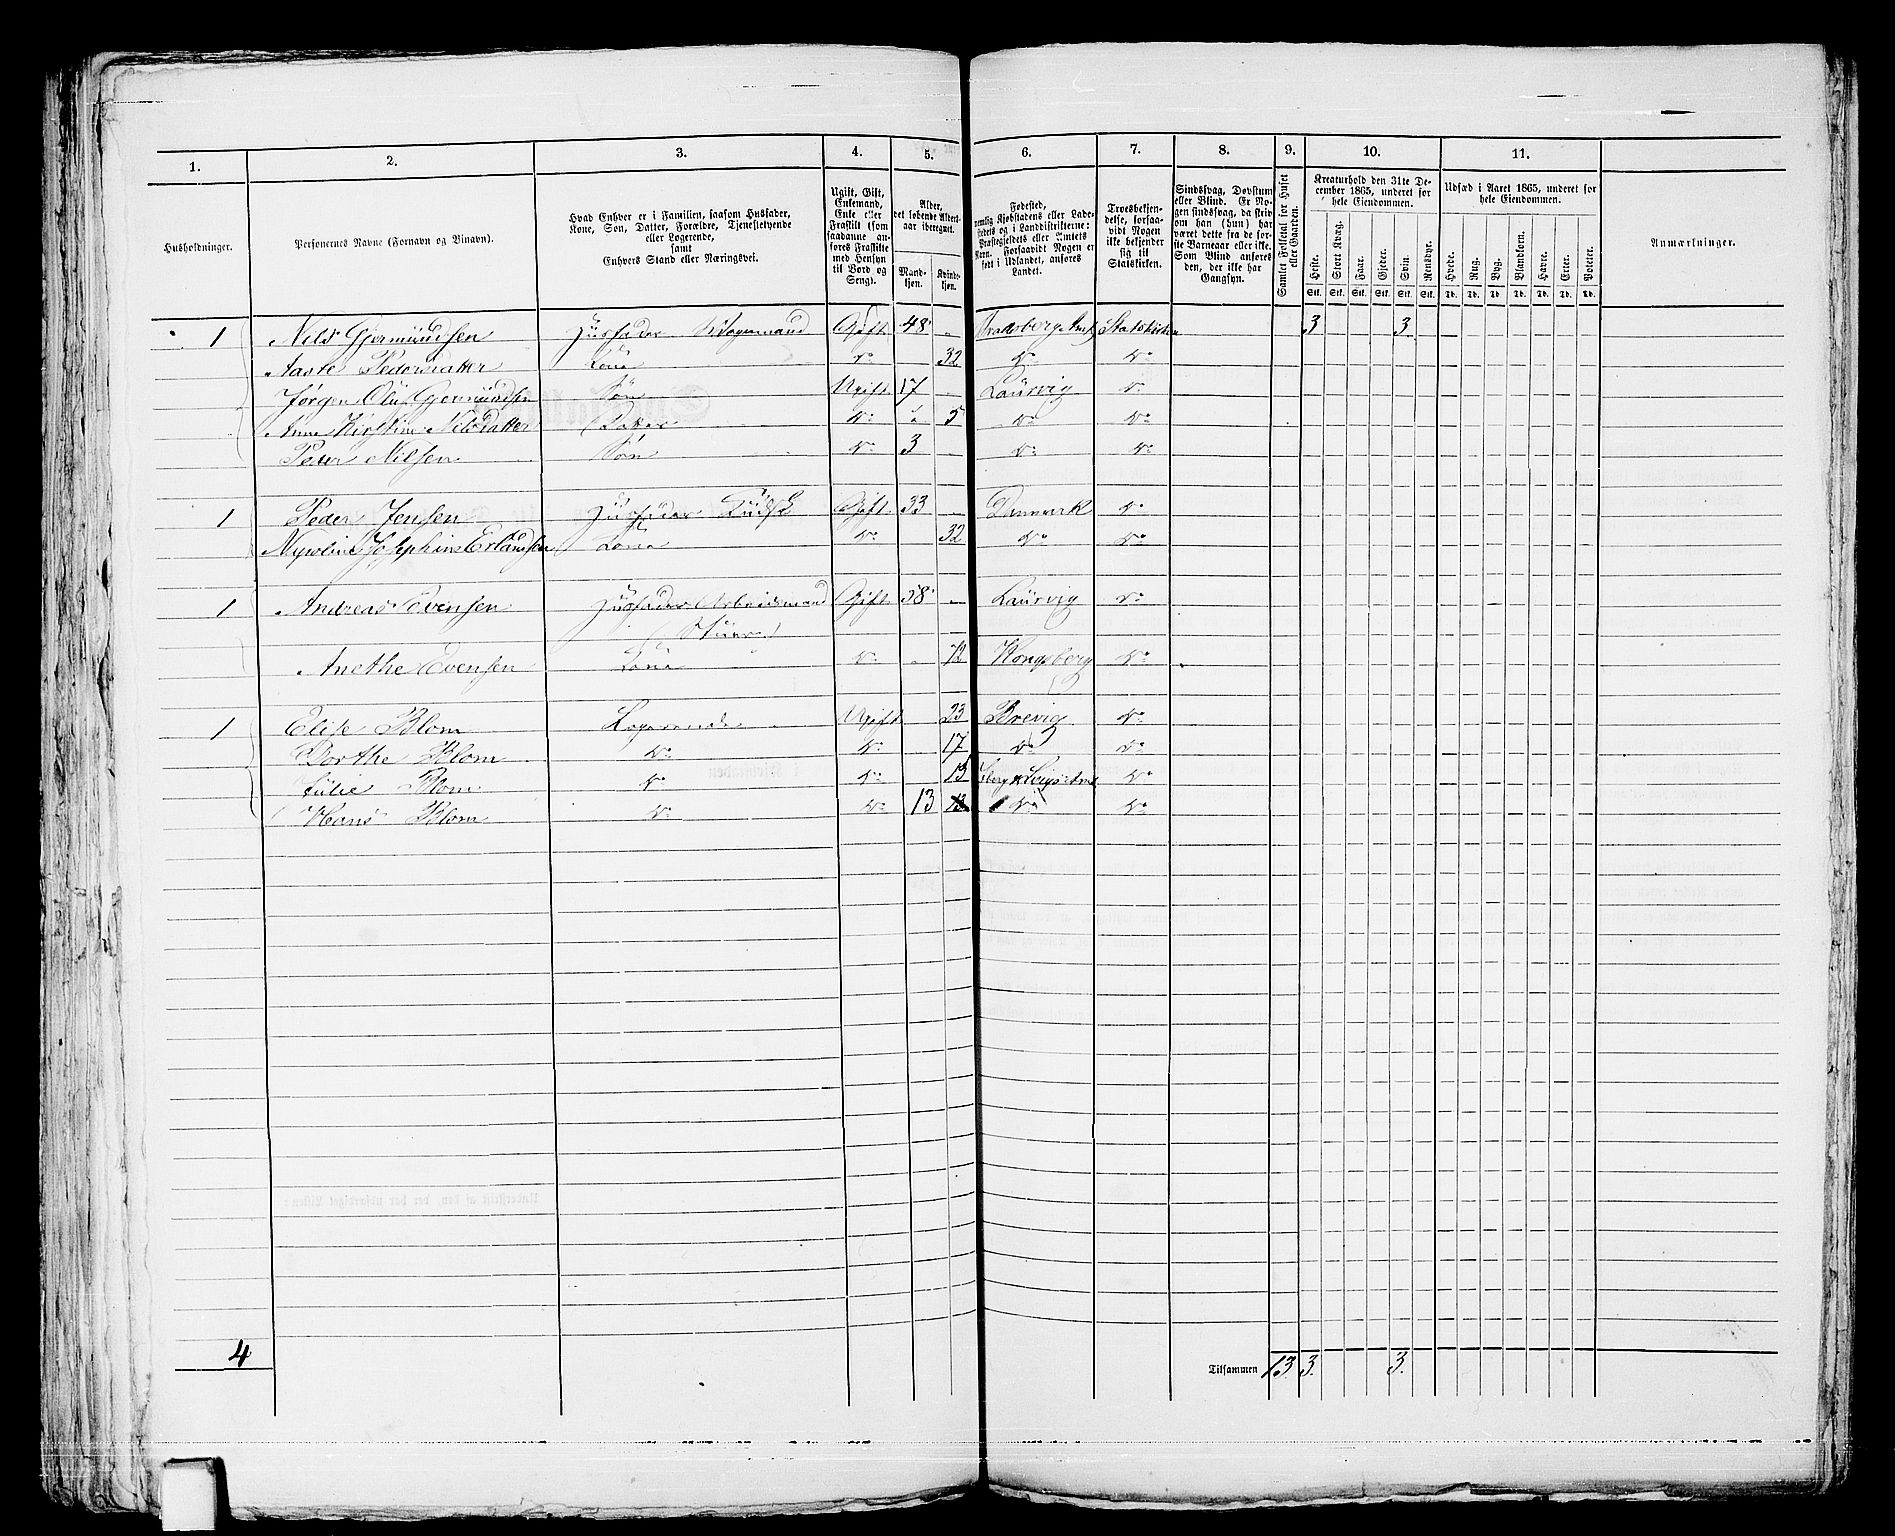 1. 2. 3. 4. 5. 6. 7. 8. 9. 10. 11.
Husholdninger.
Personernes Navne (Fornavn og Binavn).
Hvad Enhver er i Familien, saasom Husfader,
Kone, Søn, Datter, Forældre, Tjenestetyende
eller Logerende,
samt
Enhvers Stand eller Næringsvei.
Ugift, Gift,
Enkemand,
Enke eller
Fraskilt (som
saadanne an-
føres Fraskilte
med Hensyn
til Bord og
Seng).
Alder,
det løbende Alders-
aar iberegnet.
Mand-
kjøn.
Kvinde-
kjøn.
Fødested,
nemlig Kjøbstadens eller Lade-
stedets og i Landdistrikterne:
Præstegjeldets eller Amtets
Navn. Forsaavidt Nogen er
født i Udlandet, anføres
Landet.
Troesbekjen-
delse, forsaa-
vidt Nogen
ikke bekjender
sig til
Statskirken.
Sindssvag, Døvstum
eller Blind. Er No-
gen sindssvag, da skriv
om han (hun) har
været dette fra de før-
ste Barneaar eller ikke.
Som Blind anføres
den, der ikke har
Gangsyn.
Gamlet Folketal for Huset
eller Gaarden.
Kreaturhold den 31te De-
cember 1865, underet for
hele Eiendommen.
Heste. Stort Kvæg. Faar. Gjeder. Svin. Rensdyr.
Stk. Stk. Stk. Stk. Stk. Stk.
Udsæd i Aaret 1865, underet for
hele Eiendommen.
Hvede. Rug. Byg. Blandkorn. Havre. Erter. Poteter.
Td. Td. Td. Td. Td. Td. Td.
Anmærkninger.
1 Nils Gjermundsen Husfader Vognmand Gift 48 Bradsberg Amt Statskirken 3 3
Aaste Pedersdatter Kone do 32 do do
Jørgen Olü Gjermundsen Søn Ugift 17 Laürvig do
Anne Kirstine Nilsdatter Datter do 5 do do
Peter Nilsen Søn do 3 do do
1 Peder Jensen Husfader Kudsk Gift 33 Danmark do
Josephine Erlandsen Kone do 32 do do
1 Andreas Evensen Husfader Arbeidsmand Gift 58 Laürvig do
Anethe Evensen Kone do 72 Kongsberg do
1 Elise Blom Logerende Ugift 23 Brevig do
Dorthe Blom do do 17 do do
Julie Blom do do 15 do
Hans Blom do do 13 do do
4 Tilsammen 13 3 3